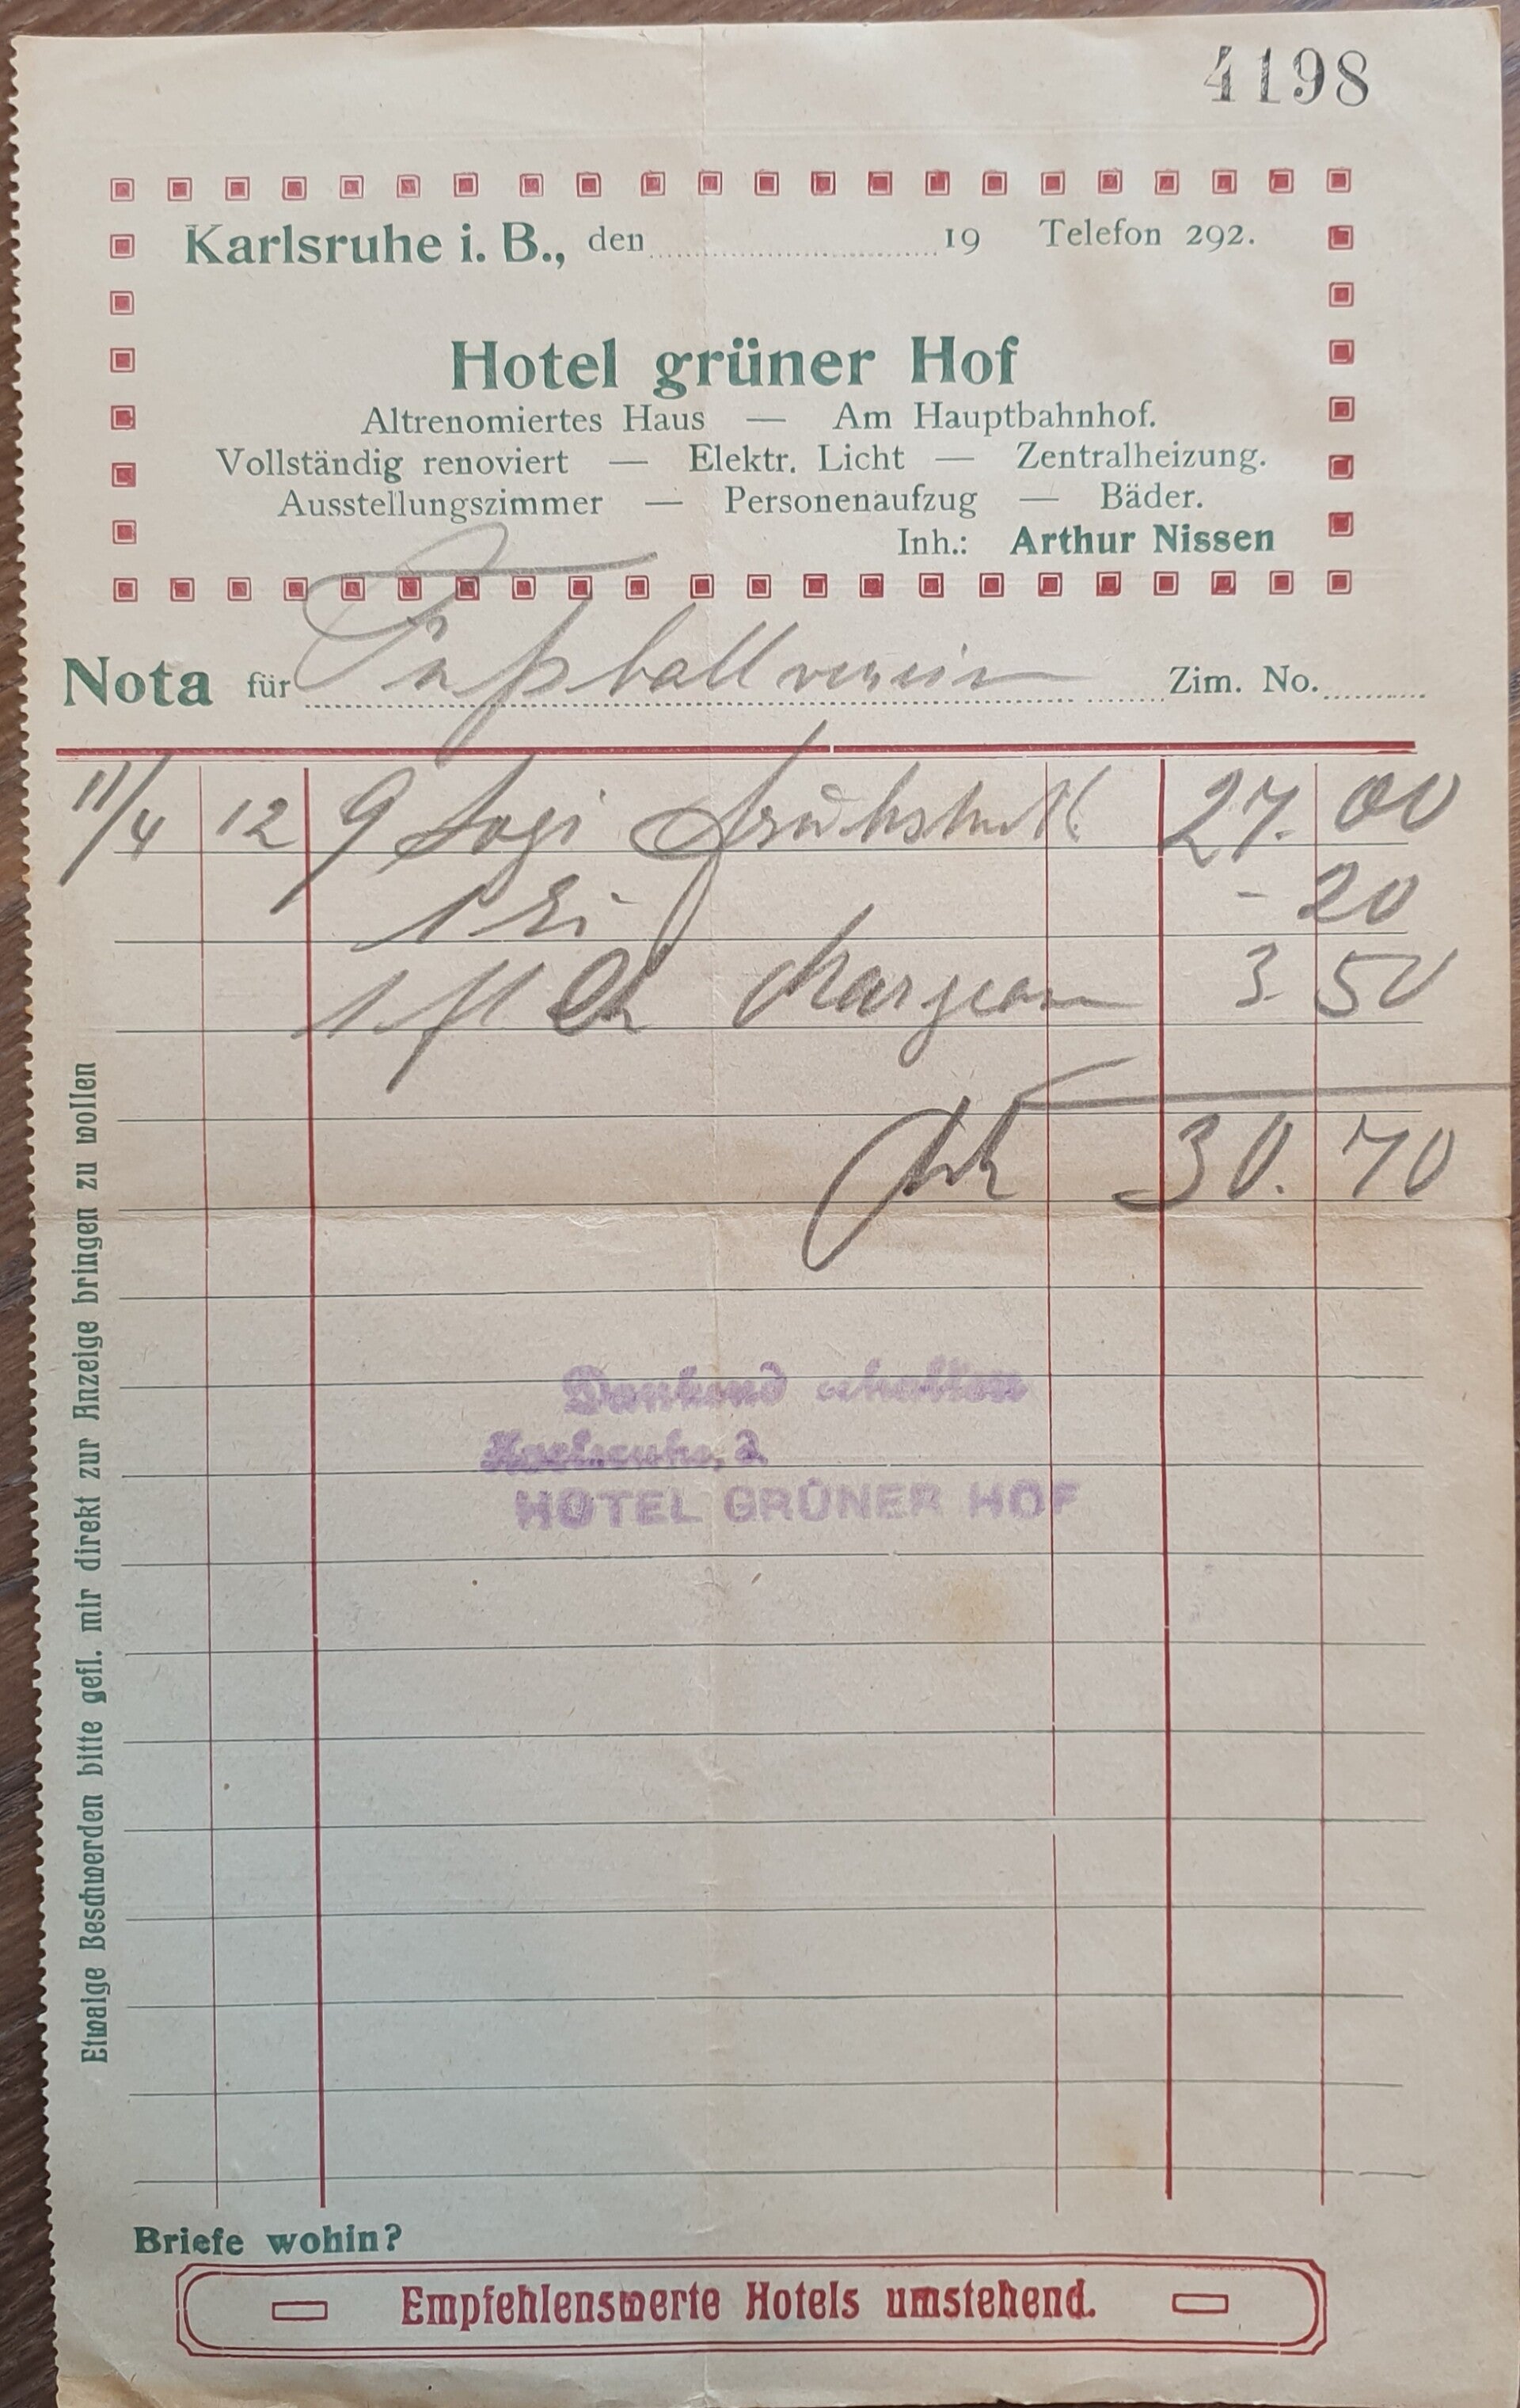 4198
Karlsruhe i. B., den 19 Telefon 292.
Hotel grüner Hof
Altrenomiertes Haus — Am Hauptbahnhof.
Vollständig renoviert — Elektr. Licht — Zentralheizung.
Ausstellungszimmer — Personenaufzug — Bäder.
Inh.: Arthur Nissen
Nota für Fußballverein Zim. No.
11/4 12 9 Logi Frühstück 27. 00
1 Ei - 20
1 Fl Ch Margeau 3. 50
Mk 30. 70
Dankend erhalten
Karlsruhe, d
HOTEL GRÜNER HOF
Etwaige Beschwerden bitte gefl. mir direkt zur Anzeige bringen zu wollen
Briefe wohin?
Empfehlenswerte Hotels umstehend.